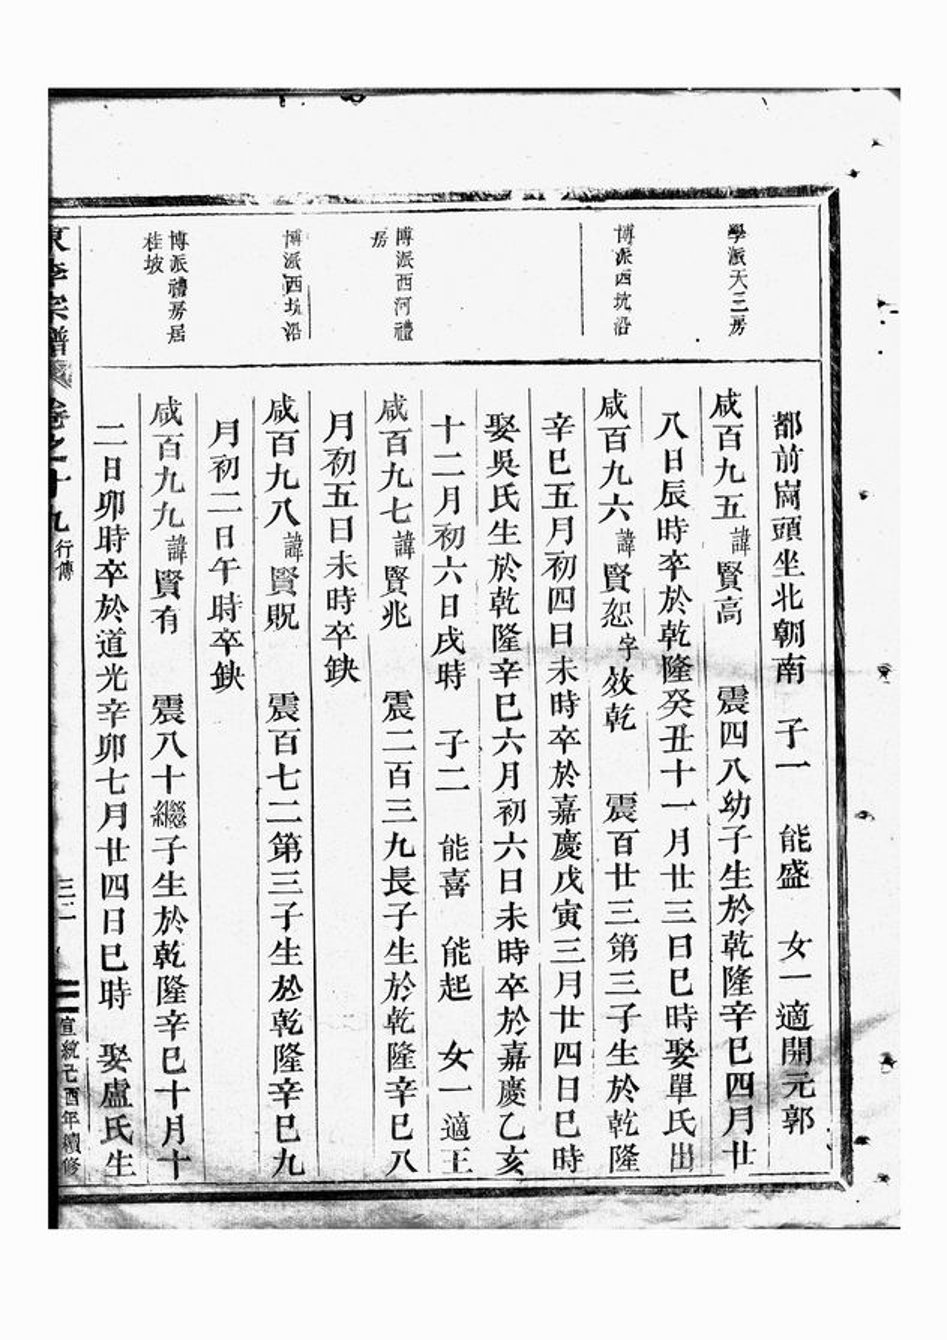 學派天三房
博派西坑沿
博派西河禮
房
博派西坑沿
博派禮房居
桂坡
都前崗頭坐北朝南 子一 能盛 女一適開元郭
咸百九五諱賢高 震四八幼子生於乾隆辛巳四月廿
八日辰時卒於乾隆癸丑十一月廿三日巳時娶單氏出
咸百九六諱賢恕字效乾 震百廿三第三子生於乾隆
辛巳五月初四日未時卒於嘉慶戊寅三月廿四日巳時
娶吳氏生於乾隆辛巳六月初六日未時卒於嘉慶乙亥
十二月初六日戌時 子二 能喜 能起 女一適王
咸百九七諱賢兆 震二百三九長子生於乾隆辛巳八
月初五日未時卒缺
咸百九八諱賢貺 震百七二第三子生於乾隆辛巳九
月初二日午時卒缺
咸百九九諱賢有 震八十繼子生於乾隆辛巳十月十
二日卯時卒於道光辛卯七月廿四日巳時 娶盧氏生
東李宗譜 卷之十九 行傳 三二 宣統己酉年續修